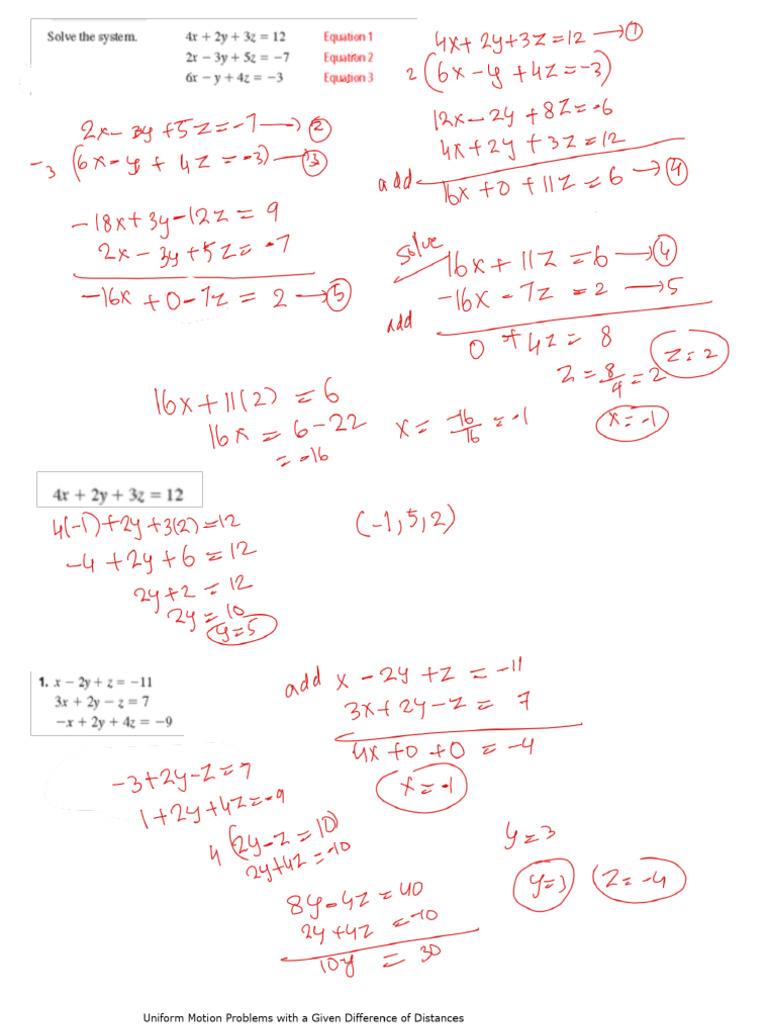 Solve the system. 4x + 2y + 3z = 12 Equation 1
2x − 3y + 5z = −7 Equation 2
6x − y + 4z = −3 Equation 3
4x + 2y + 3z = 12 → ①
2 (6x − y + 4z = −3)
12x − 2y + 8z = −6
4x + 2y + 3z = 12
add 16x + 0 + 11z = 6 → ④
2x − 3y + 5z = −7 → ②
−3 (6x − y + 4z = −3) → ③
−18x + 3y − 12z = 9
2x − 3y + 5z = −7
−16x + 0 − 7z = 2 → ⑤
Solve
16x + 11z = 6 → ④
−16x − 7z = 2 → 5
add
0 + 4z = 8
z = 8/4 = 2
z = 2
16x + 11(2) = 6
16x = 6 − 22
= −16
x = −16/16 = −1
x = −1
4x + 2y + 3z = 12
4(−1) + 2y + 3(2) = 12
−4 + 2y + 6 = 12
2y + 2 = 12
2y = 10
y = 5
(−1, 5, 2)
1. x − 2y + z = −11
3x + 2y − z = 7
−x + 2y + 4z = −9
add x − 2y + z = −11
3x + 2y − z = 7
4x + 0 + 0 = −4
x = −1
−3 + 2y − z = 7
1 + 2y + 4z = −9
4 (2y − z = 10)
2y + 4z = −10
8y − 4z = 40
2y + 4z = −10
10y = 30
y = 3
y = 3 z = −4
Uniform Motion Problems with a Given Difference of Distances